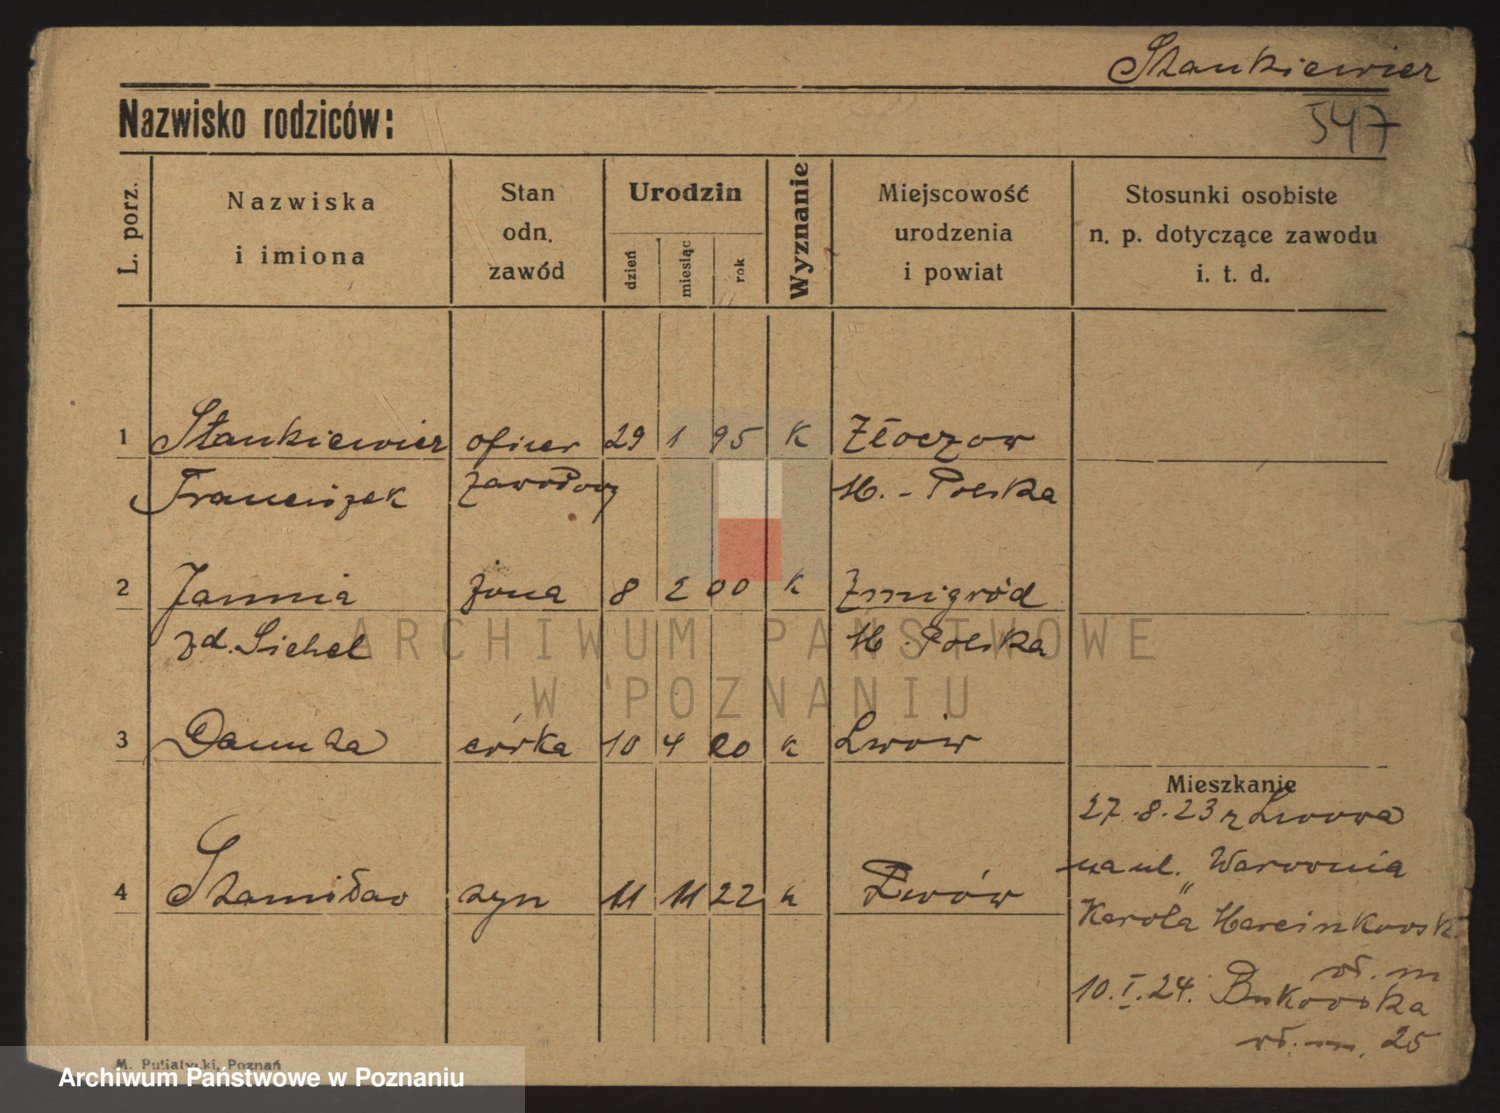 Stankiewicz
547
Nazwisko rodziców:
L. porz.
Nazwiska
i imiona
Stan
odn.
zawód
Urodzin
dzień
miesiąc
rok
Wyznanie
Miejscowość
urodzenia
i powiat
Stosunki osobiste
n. p. dotyczące zawodu
i. t. d.
1 Stankiewicz oficer 29 1 95 K Złoczow
Franciszek zawodowy M. - Polska
2 Janina żona 8 2 00 K Żmigród
zd. Sichel M. Polska
ARCHIWUM PAŃSTWOWE
W POZNANIU
3 Danuta córka 10 4 20 k Lwów
Mieszkanie
27.8.23 z Lwowa
na ul. Warownia
4 Stanisław syn 11 11 22 k Lwów
Karola Marcinkowsk.
wł. m
10.I.24. Bukowska
wł. m. 25
M. Putiatycki, Poznań
Archiwum Państwowe w Poznaniu